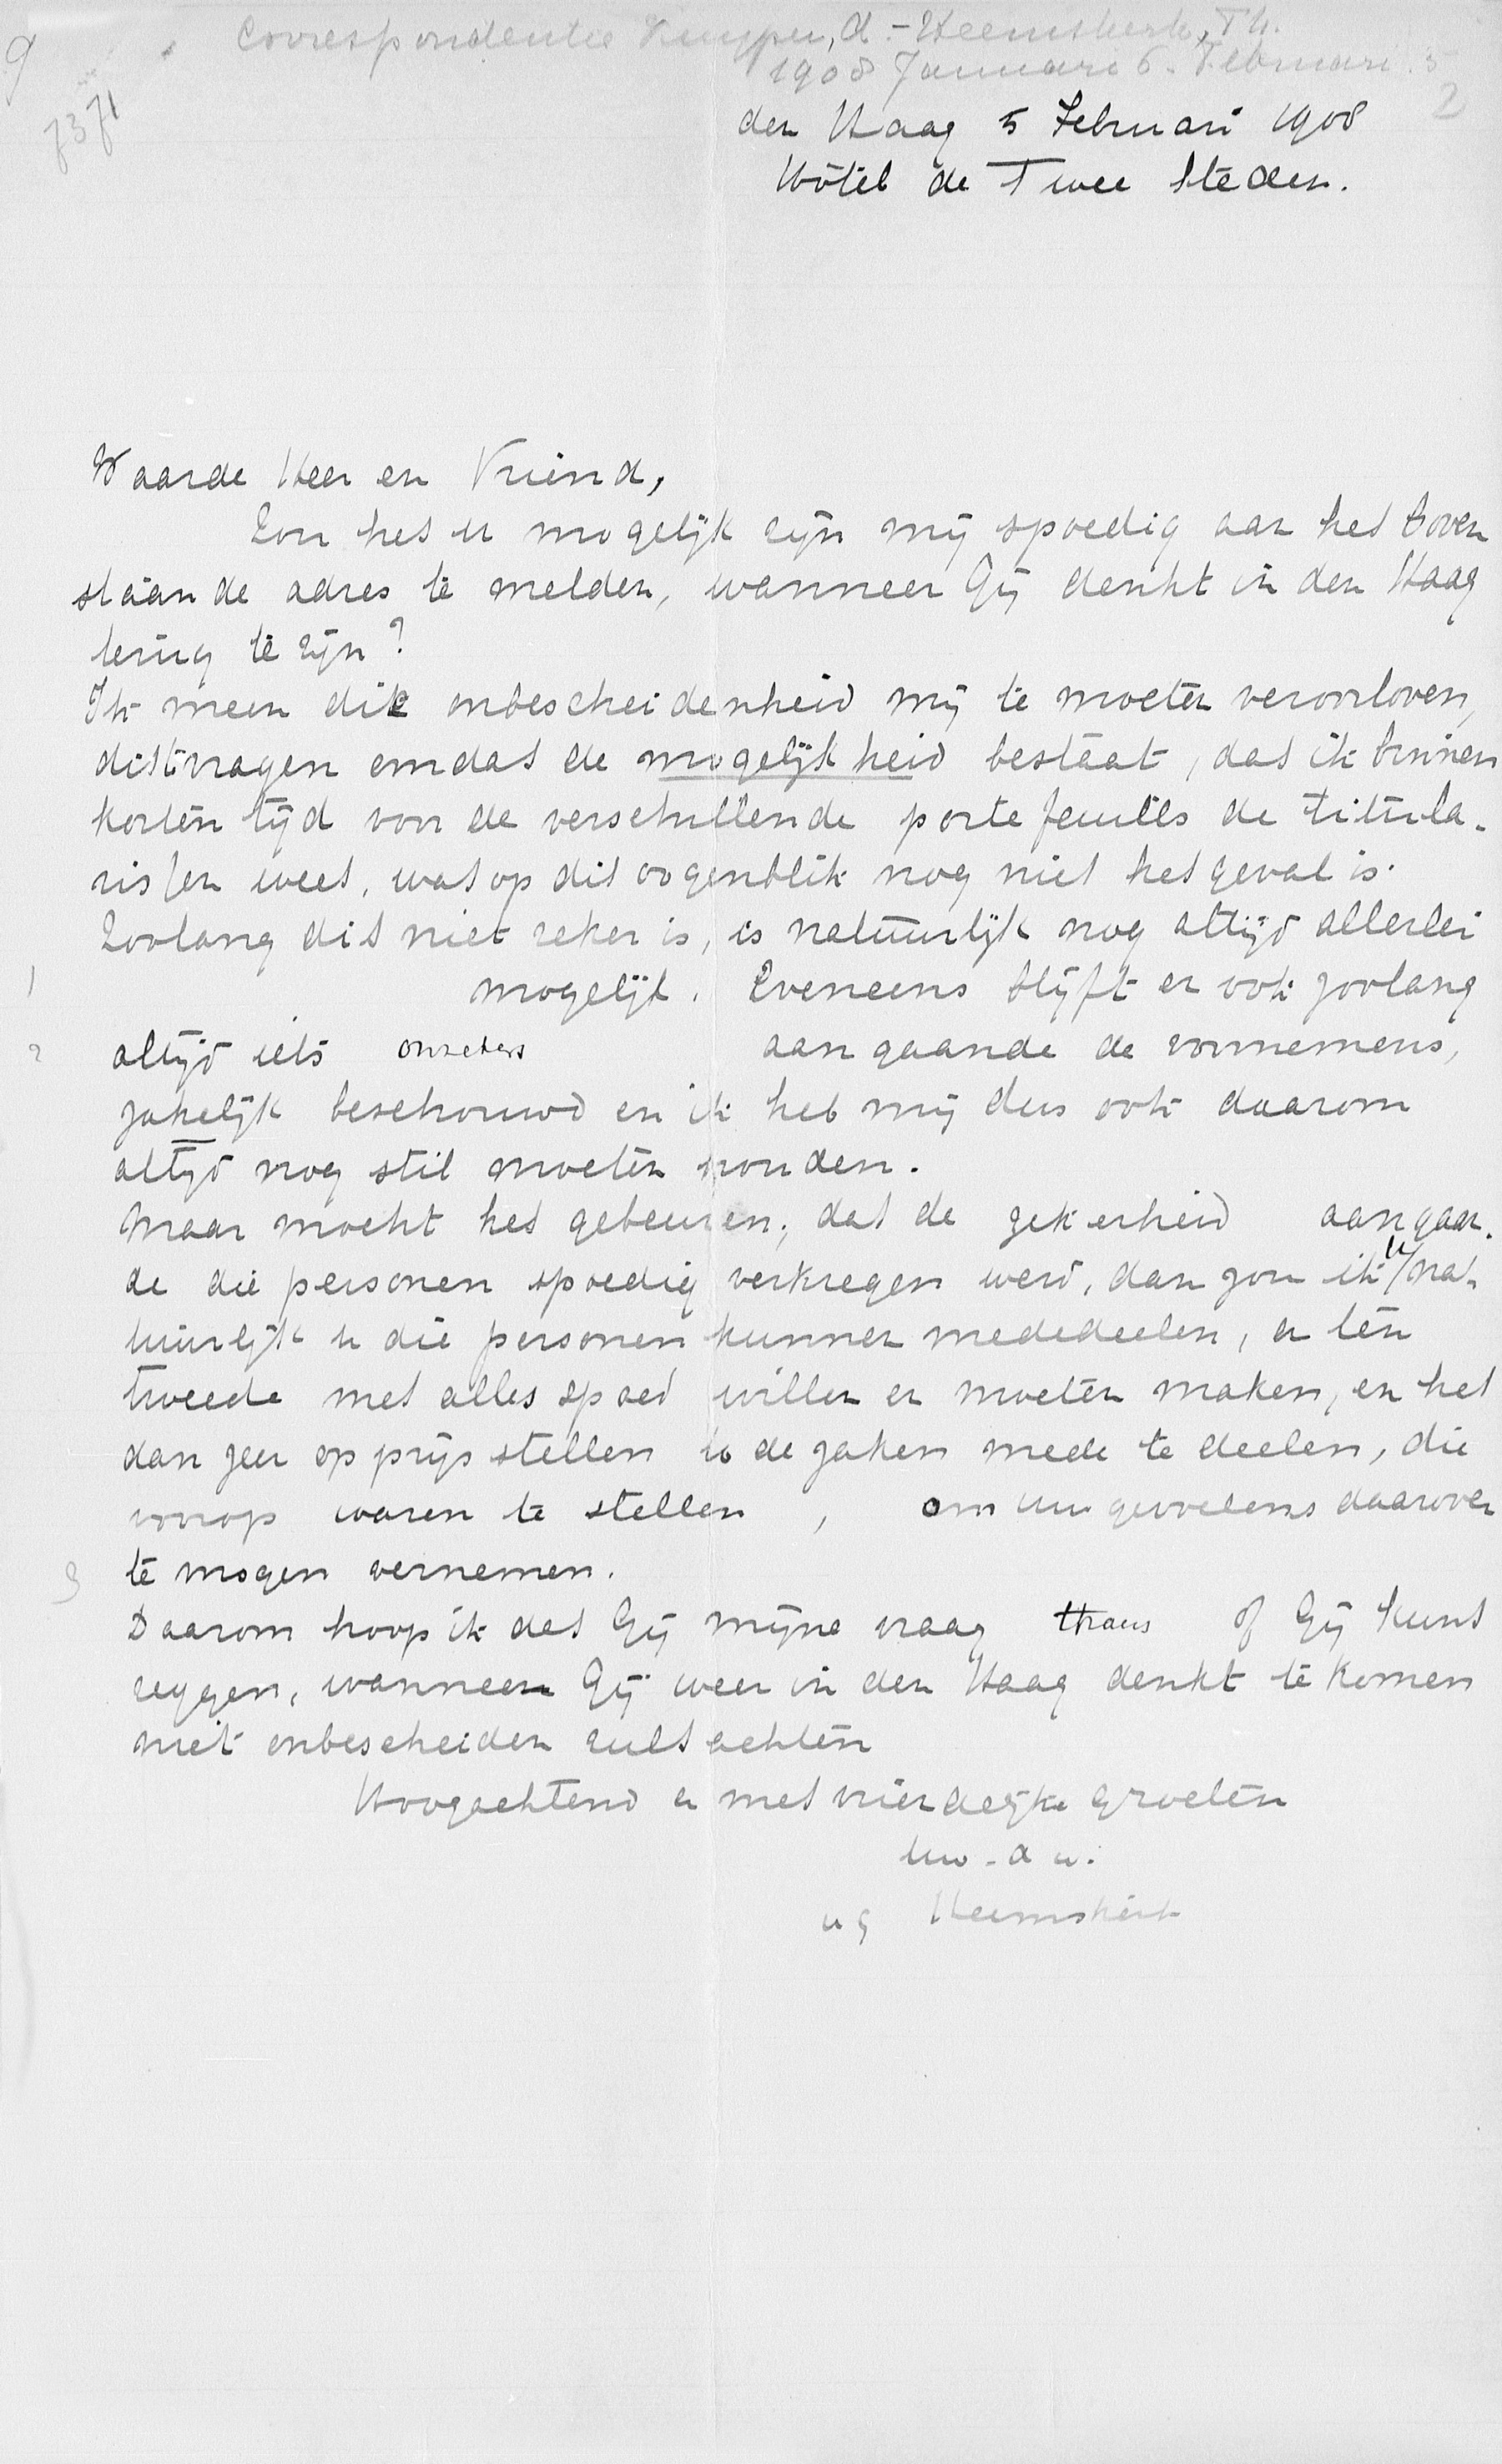 9
Correspondentie Kuyper, A. - Heemskerk, Th.
1908 Januari 6 - Februari 5
7371
2
den Haag 5 Februari 1908
Hôtel de Twee Steden.
Waarde Heer en Vriend,
Zou het u mogelijk zijn mij spoedig aan het boven
staande adres te melden, wanneer Gij denkt in den Haag
terug te zijn?
Ik meen die onbescheidenheid mij te moeten veroorloven,
dit vragen omdat de mogelijkheid bestaat, dat ik binnen
korten tijd voor de verschillende portefeuilles de titula-
rissen weet, wat op dit oogenblik nog niet het geval is.
Zoolang dit niet zeker is, is natuurlijk nog altijd allerlei
1 mogelijk. Eveneens blijft er ook zoolang
2 altijd iets onzekers aangaande de voornemens,
zakelijk beschouwd en ik heb mij dus ook daarom
altijd nog stil moeten houden.
Maar mocht het gebeuren, dat de zekerheid aangaan-
de die personen spoedig verkregen werd, dan zou ik u/na-
tuurlijk u die personen kunnen mededeelen, en ten
tweede met alles spoed willen en moeten maken, en het
dan zeer op prijs stellen u de zaken mede te deelen, die
voorop waren te stellen, om uw gevoelens daarover
3 te mogen vernemen.
Daarom hoop ik dat Gij mijne vraag thans of Gij kunt
zeggen, wanneer Gij weer in den Haag denkt te komen
niet onbescheiden zult achten
Hoogachtend en met vriendelijke groeten
Uw. d u.
wg Heemskerk